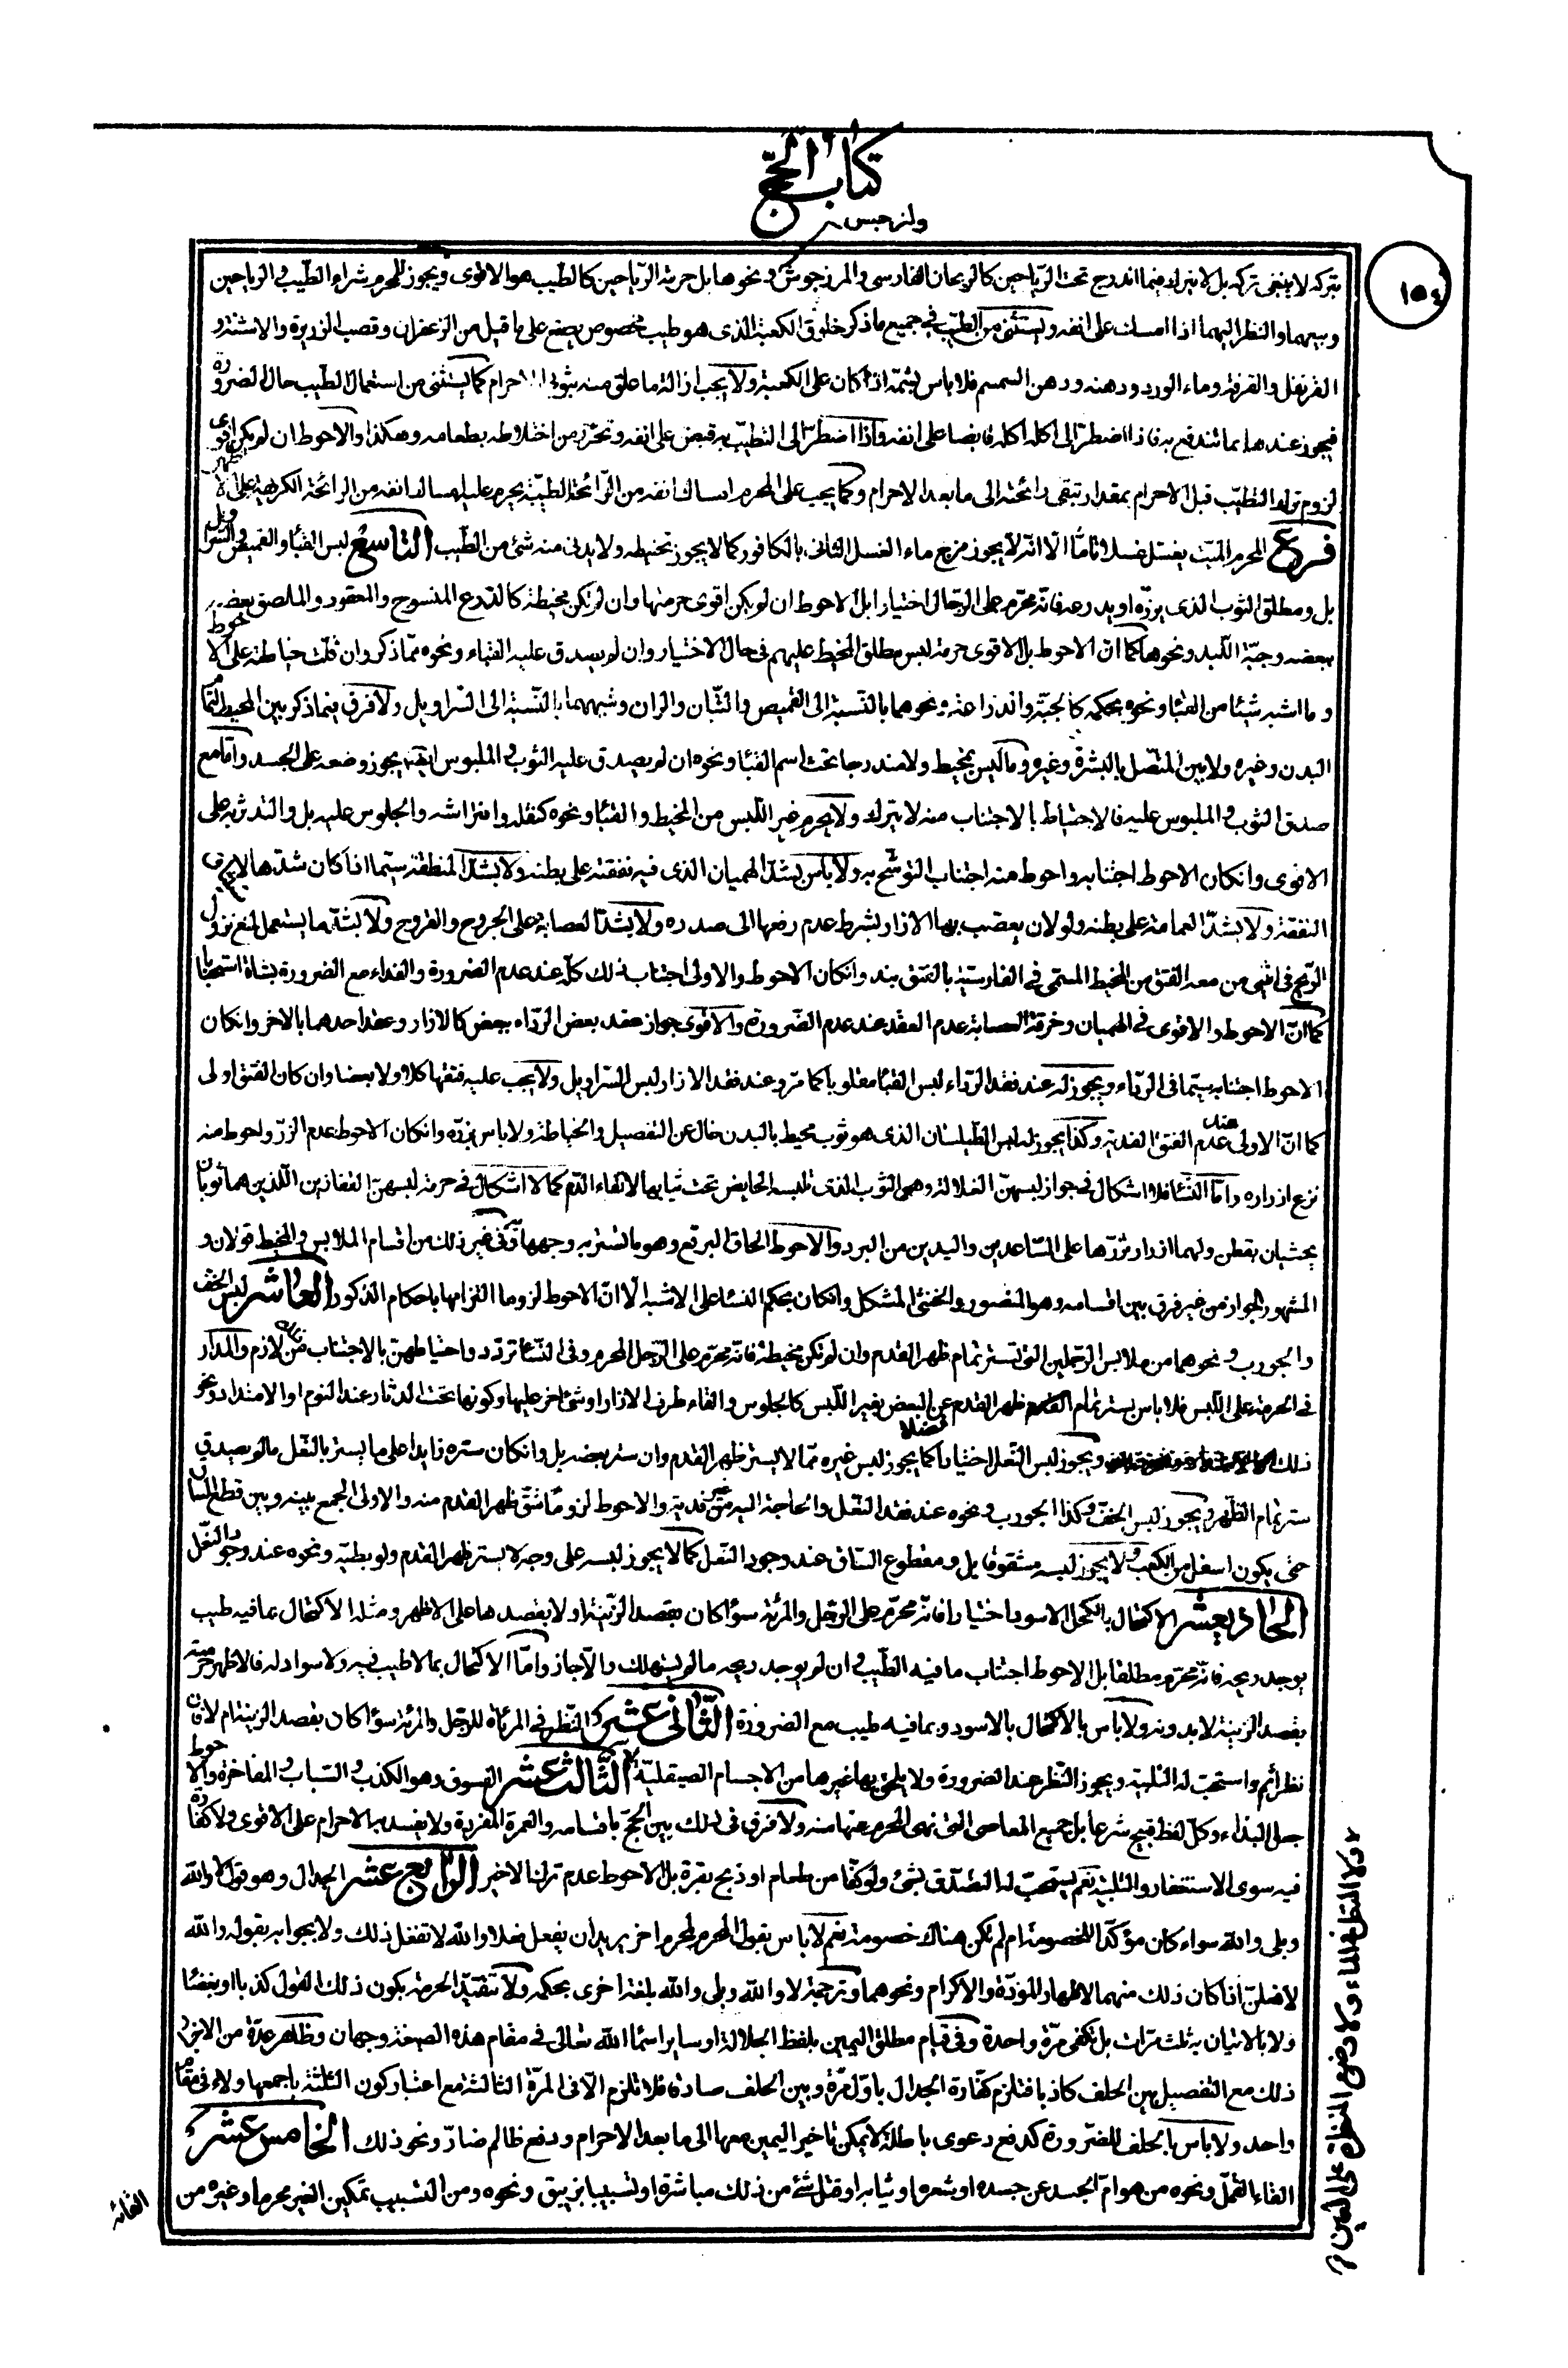 كتاب الحج
والنرجس
١٥٤
يتركه لا ينبغى تركه بل لا يترك فيما اندرج تحت الرّياحين كالريحان الفارسى والمرزجوش ونحوها بل حرمة الرّياحين كالطيب هو الاقوى ويجوز للمحرم شراء الطّيب والرياحين
وبيعهما والنظر اليهما اذا امسك على انفه ويستثنى من الطيب فى جميع ما ذكر خلوق الكعبة الذى هو طيب مخصوص يصنع على ما قيل من الزعفران وقصب الزريرة والاشنة و
القرنفل والقرفة وماء الورد ودهنه ودهن السمسم فلا باس بشمّه اذا كان على الكعبة ولا يجب ازالة ما علق منه بثوبى الاحرام كما يستثنى من استعمال الطيب حال الضرورة
فيجوز عندها بما تندفع به فاذا اضطرّ الى اكله اكله قابضا على انفه واذا اضطرّ الى التطيّب به قبض على انفه وتحرّز من اختلاطه بطعامه وهكذا والاحوط ان لم يكن اقوى
لزوم ترك التطيّب قبل الاحرام بمقدار تبقى رائحته الى ما بعد الاحرام وكما يجب على المحرم امساك انفه من الرّائحة الطيّبة يحرم عليه امساك انفه من الرائحة الكريهة على الاظهر
فرع المحرم الميّت يغسّل غسلا تامّا الّا انّه لا يجوز مزج ماء الغسل الثانى بالكافور كما لا يجوز تحنيطه ولا يدنى منه شئ من الطّيب التاسع لبس القبا والقميص والسّراويل
بل ومطلق الثوب الذى يزرّه او يدرعه فانّه محرّم على الرّجال اختيارا بل الاحوط ان لم يكن اقوى حرمتها وان لم تكن مخيطة كالدرع المنسوج والمعقود والملصق بعضه
ببعضه وجبّة اللّبد ونحوها كما انّ الاحوط بل الاقوى حرمة لبس مطلق المخيط عليهم فى حال الاختيار وان لم يصدق عليه القباء ونحوه ممّا ذكر وان قلّت خياطته على الاحوط
وما اشبه شيئا من القبا ونحوه بحكمه كالجبّة والدرّاعة ونحوهما بالنّسبة الى القميص والتّبان والران وشبههما بالنّسبة الى السّراويل ولا فرق فيما ذكر بين المحيط بتمام
البدن وغيره ولا بين المتّصل بالبشرة وغيره وما ليس بمخيط ولا مندرجا تحت اسم القبا ونحوه ان لم يصدق عليه الثوب والملبوس ايضا يجوز وضعه على الجسد وامّا مع
صدق الثوب والملبوس عليه فالاحتياط بالاجتناب منه لا يترك ولا يحرم غير اللّبس من المخيط والقبا ونحوه كنقله وافتراشه والجلوس عليه بل والتدثّر به على
الاقوى وان كان الاحوط اجتنابه واحوط منه اجتناب التوشّح به ولا باس بشدّ الهميان الذى فيه نفقته على بطنه ولا بشدّ المنطقة سيّما اذا كان شدّها لاحراز
النفقة ولا بشدّ العمامة على بطنه ولو لان يعصّب بها الازار بشرط عدم رفعها الى صدره ولا بشدّ العصابة على الجروح والقروح ولا بشدّ ما يستعمل لمنع نزول
الرّيح فى انثيى من معه الفتق من المخيط المسمّى فى الفارسيّة بالفتق بند وان كان الاحوط والاولى اجتناب ذلك كلّه عند عدم الضرورة والفداء مع الضرورة بشاة استحبابا
كما انّ الاحوط والاقوى فى الهميان وخرقة العصابة عدم العقد عند عدم الضّرورة والاقوى جواز عقد بعض الرّداء ببعض كالازار وعقد احدهما بالاخر وان كان
الاحوط اجتنابه سيّما فى الرداء ويجوز له عند فقد الرّداء لبس القبا مقلوبا كما مرّ وعند فقد الازار لبس السّراويل ولا يجب عليه فتقها كلا ولا بعضا وان كان الفتق اولى
كما انّ الاولى عند عدم الفتق الفدية وكذا يجوز لبس الطّيلسان الذى هو ثوب محيط بالبدن خال عن التفصيل والخياطة ولا باس بزرّه وان كان الاحوط عدم الزرّ واحوط منه
نزع ازراره وامّا النّسا فلا اشكال فى جواز لبسهنّ الغلالة وهى الثوب الذى تلبسه الحايض تحت ثيابها لاتّقاء الدّم كما لا اشكال فى حرمة لبسهنّ القفازين اللّذين هما ثوبان
يحشيان بقطن ولهما ازرار تزرّها على السّاعدين واليدين من البرد والاحوط الحاق البرقع وهو ما تستر به وجهها وفى غير ذلك من اقسام الملابس والمخيط قولان و
المشهور الجواز من غير فرق بين اقسامه وهو المنصور والخنثى المشكل وان كان بحكم النسا على الاشبه الّا انّ الاحوط لزوما التزامها باحكام الذكور العاشر لبس الخف
والجورب ونحوهما من ملابس الرّجلين التى تستر تمام ظهر القدم وان لم تكن مخيطة فانّه محرّم على الرّجل المحرم وفى النسا تردّد واحتياطهنّ بالاجتناب لازم والمدار
فى الحرمة على اللّبس فلا باس بستر تمام ظهر القدم عن البعض بغير اللّبس كالجلوس والقاء طرف الازار او شئ اخر عليها وكونها تحت الدثار عند النوم او الامتداد ونحو
ذلك ويجوز لبس النّعل اختيارا كما يجوز لبس غيره ممّا لا يستر ظهر القدم وان ستر بعضه بل وان كان ستره زايدا على ما يستر بالنّعل ما لم يصدق
ستر تمام الظّهر ويجوز لبس الخفّ وكذا الجورب ونحوه عند فقد النّعل والحاجة اليه من غير فدية والاحوط لزوما شقّ ظهر القدم منه والاولى الجمع بينه وبين قطع الساق
حتى يكون اسفل من الكعب ولا يجوز لبسه مشقوقا بل ومقطوع السّاق عند وجود النّعل كما لا يجوز لبسه على وجه لا يستر ظهر القدم ولو بطيّه ونحوه عند وجود النّعل
الحاديعشر الاكتحال بالكحل الاسود اختيارا فانّه محرّم على الرّجل والمرئة سواء كان بقصد الزّينة او لا بقصدها على الاظهر ومثله الاكتحال بما فيه طيب
يوجد ريحه فانّه محرّم مطلقا بل الاحوط اجتناب ما فيه الطّيب وان لم يوجد ريحه ما لم يستهلك والّا جاز وامّا الاكتحال بما لا طيب فيه ولا سواد له فالاظهر حرمته
بقصد الزّينة لا بدونه ولا باس بالاكتحال بالاسود وبما فيه طيب مع الضرورة الثّانى عشر النّظر فى المرئاة للرّجل والمرئة سواء كان بقصد الزينة ام لا فان
نظر اثم واستحبّ له التلبية ويجوز النّظر عند الضرورة ولا يلحق بها غيرها من الاجسام الصيقليّة الثّالث عشر الفسوق وهو الكذب والسّباب والمفاخرة والاحوط
جعل البذاء وكلّ لفظ قبيح شرعا بل جميع المعاصى التى نهى المحرم عنها منه ولا فرق فى ذلك بين الحجّ باقسامه والعمرة المفردة ولا يفسد به الاحرام على الاقوى ولا كفّارة
فيه سوى الاستغفار والتلبية نعم يستحبّ له التّصدّق بشئ ولو كفّا من طعام او ذبح بقرة بل الاحوط عدم ترك الاخير الرّابع عشر الجدال وهو قول لا والله
وبلى والله سواء كان مؤكّدا للخصومة ام لم تكن هناك خصومة نعم لا باس بقول المحرم لمحرم اخر يريد ان يفعل فعلا والله لا تفعل ذلك ولا بجوابه بقوله والله
لافعلنّ اذا كان ذلك منهما لاظهار المودّة والاكرام ونحوهما وترجمة لا والله وبلى والله بلغة اخرى بحكمه ولا تتقيّد الحرمة بكون ذلك القول كذبا او بغضا
ولا بالاتيان به ثلث مرّات بل تكفى مرّة واحدة وفى قيام مطلق اليمين بلفظ الجلالة او ساير اسماء الله تعالى فى مقام هذه الصيغة وجهان وظاهر عدّة من الاخبار
ذلك مع التفصيل بين الحلف كاذبا فتلزم كفّارة الجدال باوّل مرّة وبين الحلف صادقا فلا تلزم الّا فى المرّة الثالثة مع اعتبار كون الثلثة باجمعها ولاء فى مقام
واحد ولا باس بالحلف للضرورة كدفع دعوى باطلة لا يمكن تاخير اليمين معها الى ما بعد الاحرام ودفع ظالم ضارّ ونحو ذلك الخامس عشر
القاء القمّل ونحوه من هوامّ الجسد عن جسده او شعره او ثيابه او قتل شئ من ذلك مباشرة او تسبيبا بزيبق ونحوه ومن التسبيب تمكين الغير محرما وغيره من
ولا النظر فى الماء ولا وضع المنظرة على العين
القائه